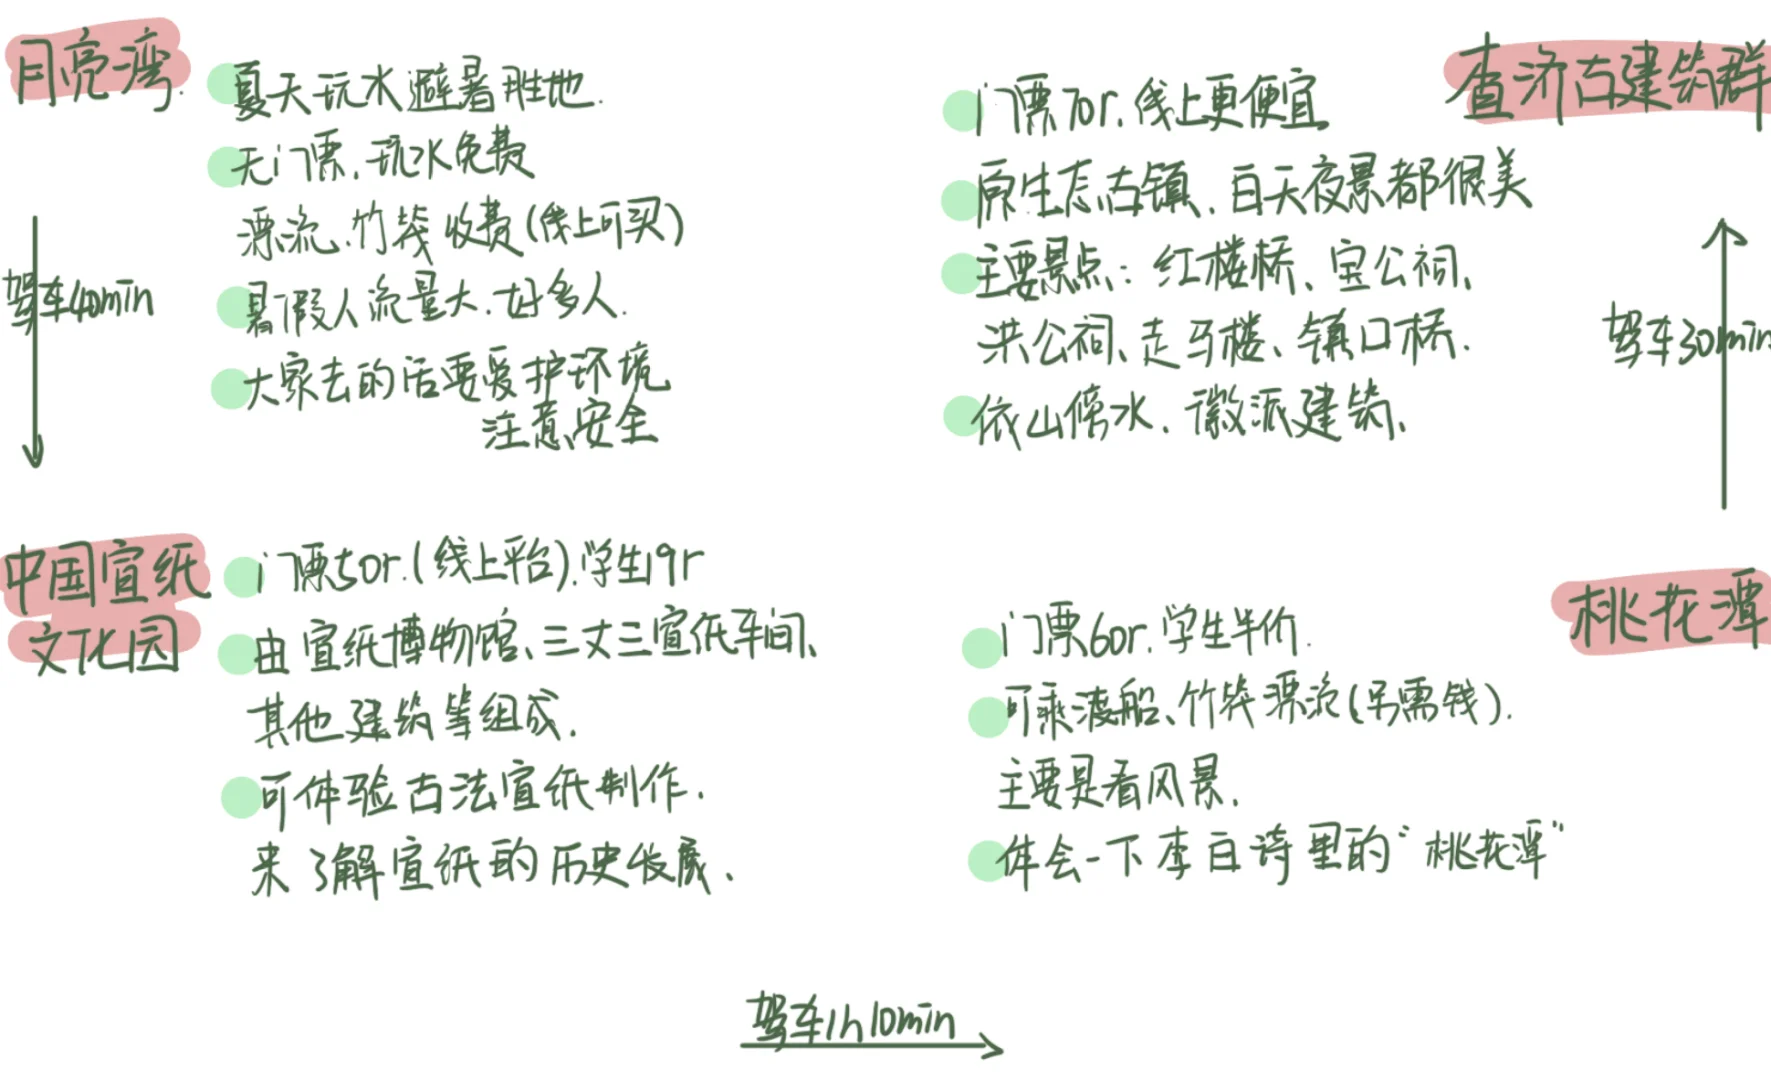 月亮湾.
夏天玩水避暑胜地.
无门票.玩水免费
漂流.竹筏收费(线上可买)
暑假人流量大.好多人.
大家去的话要爱护环境
注意安全
驾车40min
中国宣纸
文化园
门票50r.(线上平台).学生19r
由宣纸博物馆、三丈三宣纸车间、
其他建筑等组成.
可体验古法宣纸制作.
来了解宣纸的历史发展、
驾车1h10min
桃花潭
门票60r.学生半价.
可乘渡船、竹筏漂流(另需钱).
主要是看风景.
体会一下李白诗里的“桃花潭”
驾车30min
查济古建筑群
门票70r.线上更便宜
原生态古镇.白天夜景都很美
主要景点：红楼桥、宝公祠、
洪公祠、走马楼、镇口桥.
依山傍水.徽派建筑、